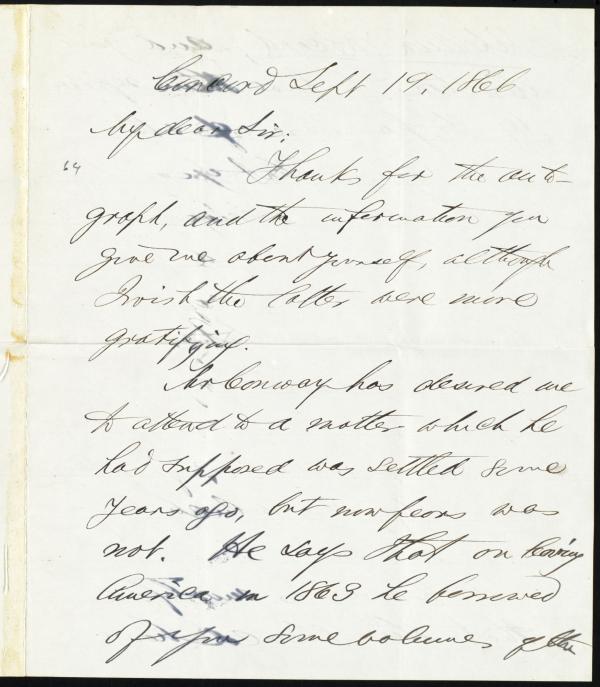 Concord Sept 19, 1866
My dear Sir:
64
Thanks for the auto-
graph, and the information you
give me about yourself, although
I wish the latter were more
gratifying.
Mr Conway has desired me
to attend to a matter which he
had supposed was settled some
years ago, but now fears was
not. He says that on leaving
America in 1863 he borrowed
of you some volumes of the